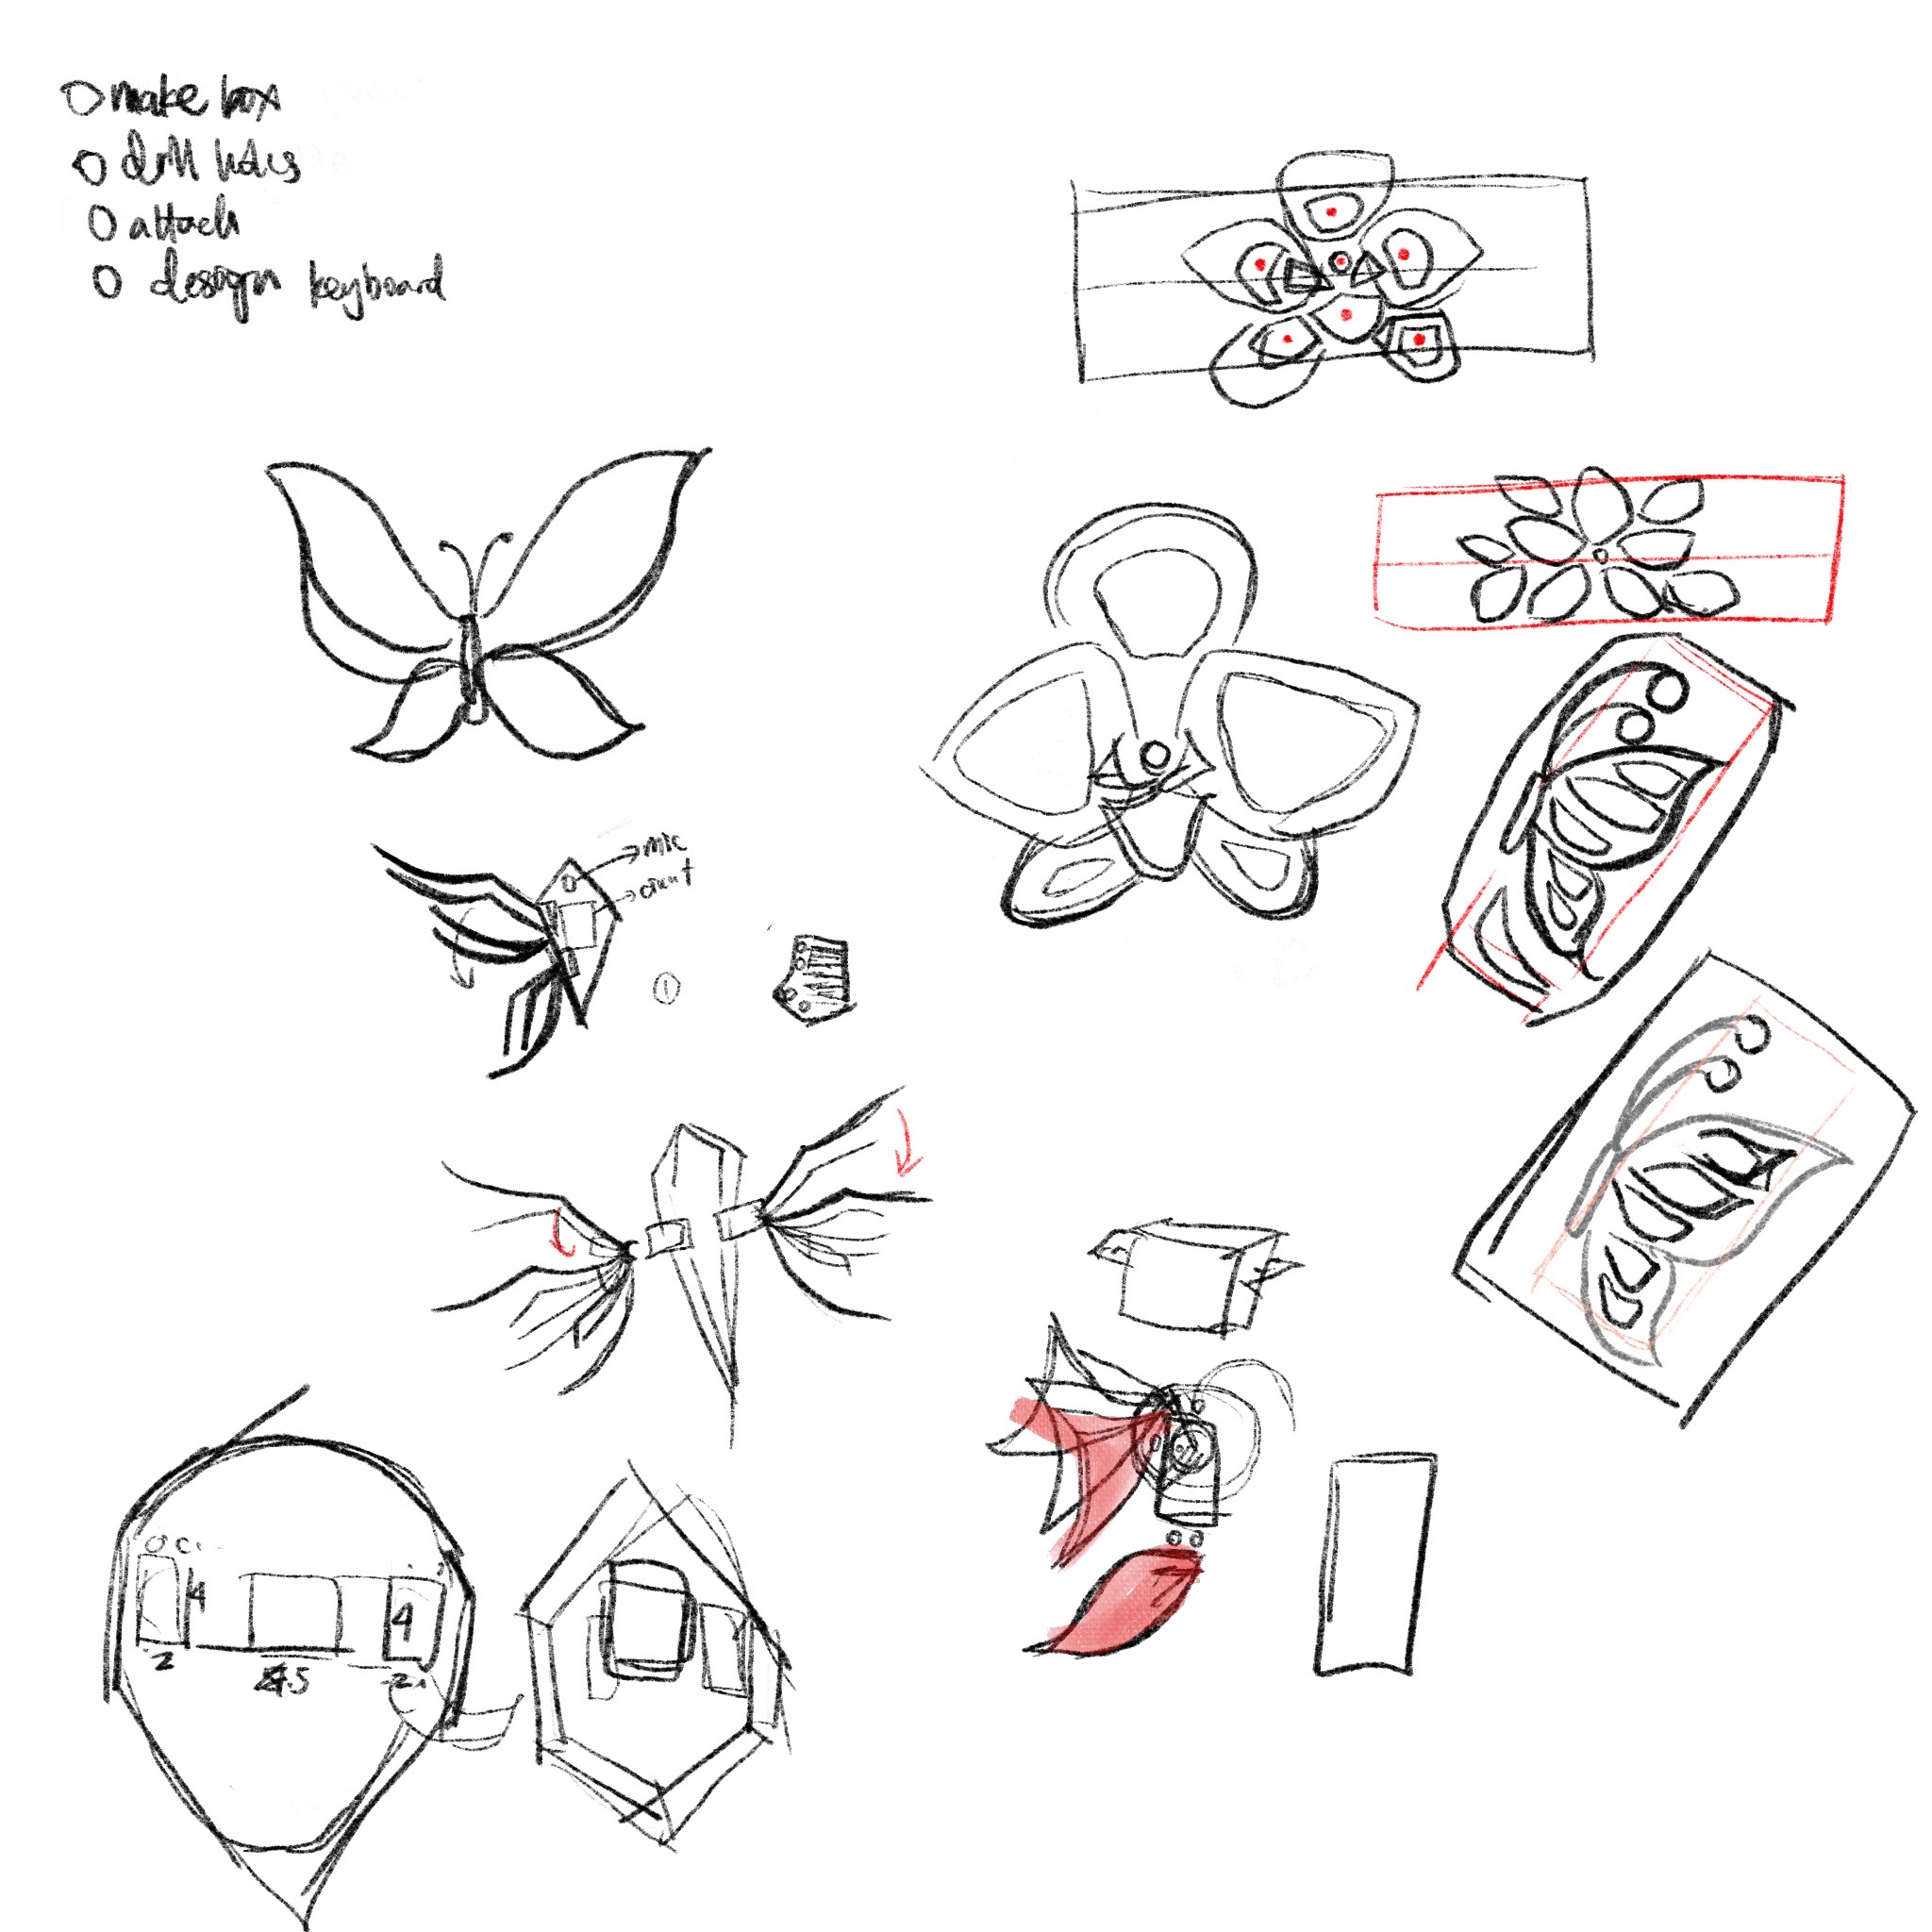 make box
drill holes
attach
design keyboard
mic
1
4
4
2
4.5
2